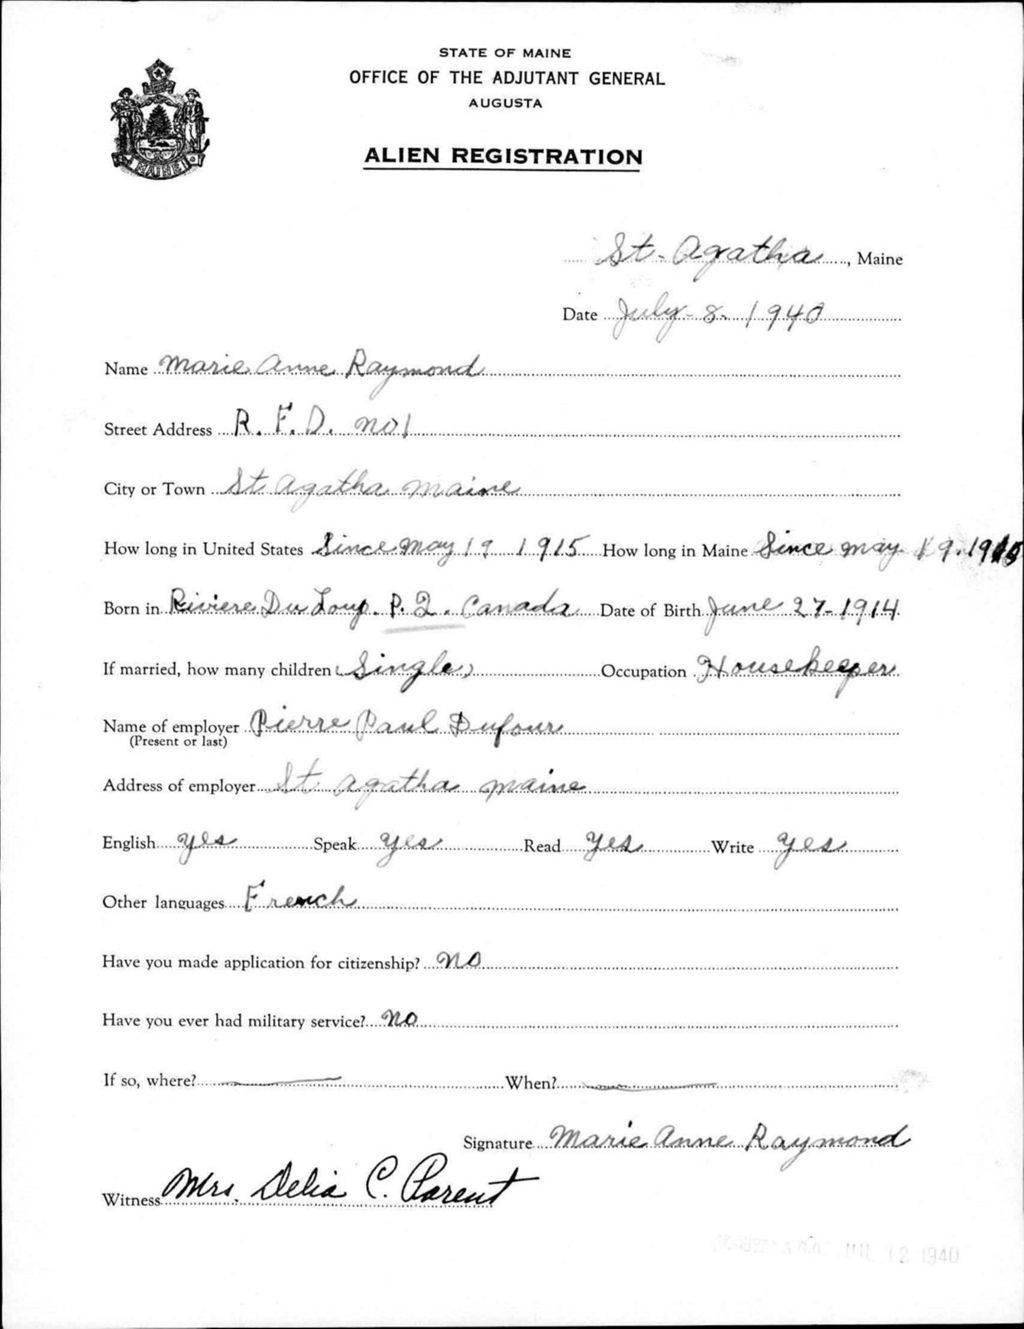 STATE OF MAINE
OFFICE OF THE ADJUTANT GENERAL
AUGUSTA
ALIEN REGISTRATION
MAINE
St. Agatha, Maine
Date July 8. 1940
Name Marie Anne Raymond
Street Address R. F. D. no 1
City or Town St Agatha Maine
How long in United States Since May 19 1915 How long in Maine Since may 19. 1915
Born in Riviere Du Loup. P. Q. Canada Date of Birth June 27-1914
If married, how many children (Single) Occupation Housekeeper
Name of employer Pierre Paul Dufour
(Present or last)
Address of employer St agatha maine
English yes Speak yes Read yes Write yes
Other languages French
Have you made application for citizenship? no
Have you ever had military service? no
If so, where? When?
Signature Marie Anne Raymond
Witness Mrs. Delia C. Parent
JUL 12 1940